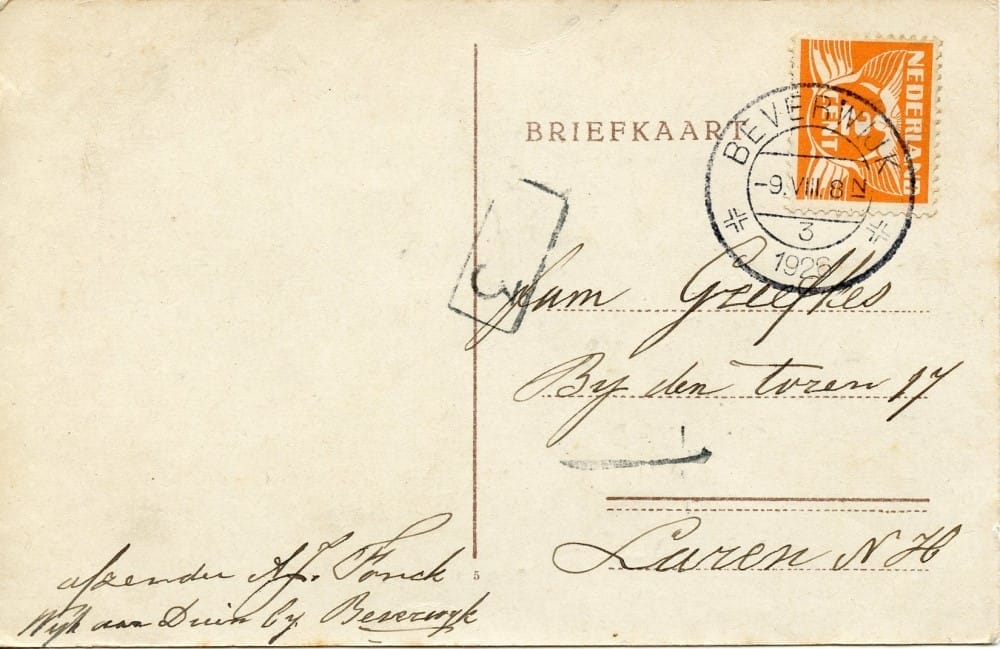 BRIEFKAART
NEDERLAND
2½ CENT
BEVERWIJK
-9.VIII.8 N
3
1926
3
Fam Greefkes
By den toren 17
Laren N H
afzender A.J. Fonck
Wijk aan Duin by. Beverwyk
5